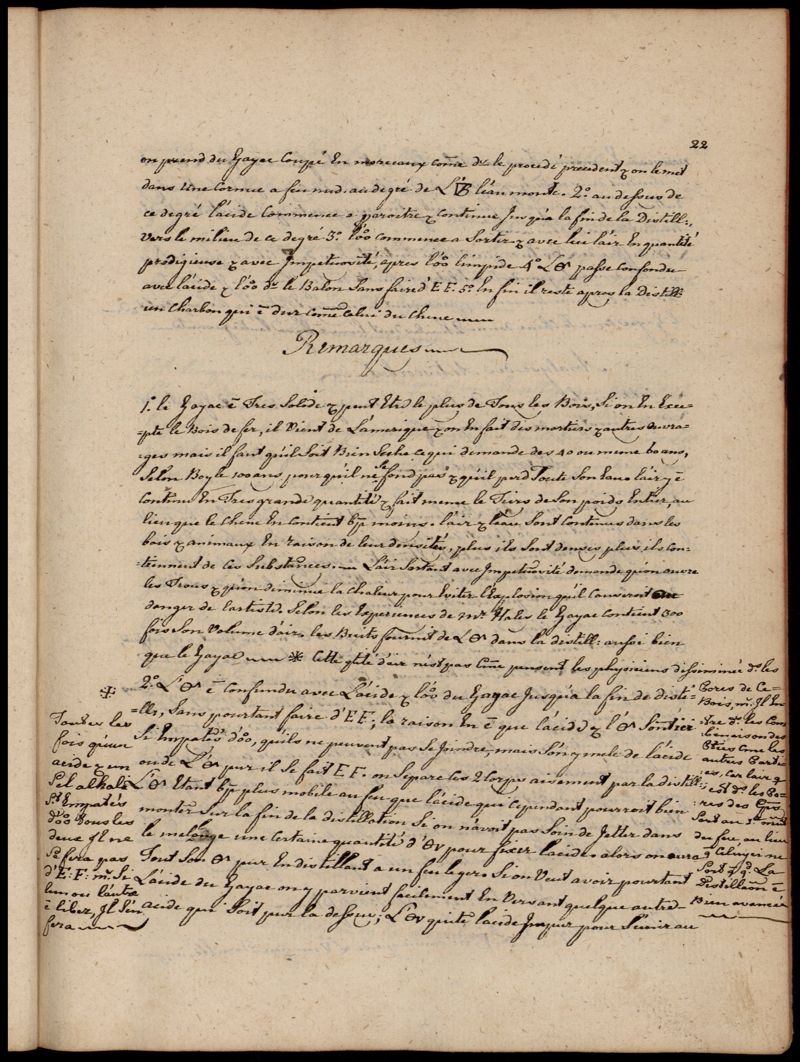 22
on prend du Gayac Coupé En morceaux come ds le procedé precedent & on le met
dans une Cornue a feu nud. au degré de L'🜄B l'eau monte. 2º. au dessus de
ce degré l'acide Commence a paroitre & continue Jusqu'a la fin de la Distill:,
vers le milieu de ce degré 3º. l'oo commence a Sortir & avec lui l'air En quantité
prodigieuse & avec Impetuosité, apres l'oo limpide 4º L'🜹 passe confondu
avec l'acide & l'oo ds le Balon Sans faire d'E E. 5º. En fin il reste apres la Distill:
un Charbon qui ē dur comē Celui du Chene
Remarques
1º. le Gayac ē Tres Solide & peut Etre le plus de Tous les Bois, Si on En Exce-
-pte le Bois de fer, il Vient de L'amerique & on En fait des mortiers & autres ouvra-
-ges mais il faut qu'il Soit Bien Seché ce qui demande des 40 ou meme 60 ans,
Selon Boyle 100 ans pour qu'il ne se fond pas & qu'il perd Toute Son Eau. l'air y ē
contenu En Tres grande quantité & fait meme le Tiers de Son poids Entier, au
lieu que le Chene En contient bp moins. l'air & l'eau Sont Contenus dans les
bois & animaux En raison de leur densités, plus ils Sont denses plus ils con-
-tiennent de Ces Substances. L'air Sortant avec Impetuosité demande qu'on ouvre
les Trous & qu'on diminue la Chaleur pour Eviter l'Explosion qu'il Causeroit au
danger de l'artiste. Selon les Experiences de Mr. Hales le Gayac Contient 300
fois Son Volume d'air. les Buits fournit de L'🜹 dans la distill: aussi bien
que le Gayac ※ Cette qtité d'air n'est pas Come pensent les physiciens disseminée ds les
Pores de Ce
Bois, ms. Il En
-tre ds les Com
-binaison des
Pties Come les
autres Parti-
-es, Car l'air q
est ds les Po-
-res des Cps
Sort au 1er mouvt
du feu au lieu
q Celui cy ne
Sort q qd La
Distillation ē
Bien avancée
2º. L'🜹 ē confundu avec L'acide & l'oo du Gayac Jusqu'a la fin de disti-
-lle, Sans pourtant faire d'E E; la raison En ē que l'acide & l'🜹 Sont ici
Si Empatés d'oo, qu'ils ne peuvent pas Se Joindre, mais Si on y mele de l'acide
ou de L'🜹 pur il Se fait E E. on Separe les 2 Corps aisement par la distill:
L'🜹 Etant bp plus mobile au feu que l'acide qui Cependant pourroit bien
monter Sur la fin de la distillation Si on n'avoit pas Soin de Jetter dans
le melange une certaine quantité d'🜹 pour fixer l'acide. alors on aura
Tout Son 🜹 pur En distillant a un feu leger. Si on Veut avoir pourtant
L'acide du Gayac on y parvient facilement En Versant quelque autre
acide qui Soit pur la dessus; L'🜹 quitte l'acide Impur pour S'unir au
※
Toutes les
fois qu'un
acide & un
Sel alkali
St Empatés
d'oo Tous les
deux Il ne
Se fera pas
d'E E: ms. Si
l'un ou l'autre
ē libre, Il S'en
fera